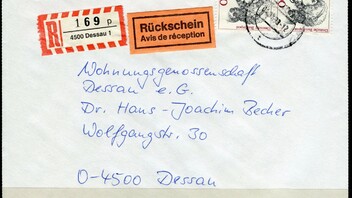 R 169 p
4500 Dessau 1
Rückschein
Avis de réception
Wohnungsgenossenschaft
Dessau e.G.
Dr. Hans-Joachim Becher
Wolfgangstr. 30
O-4500 Dessau